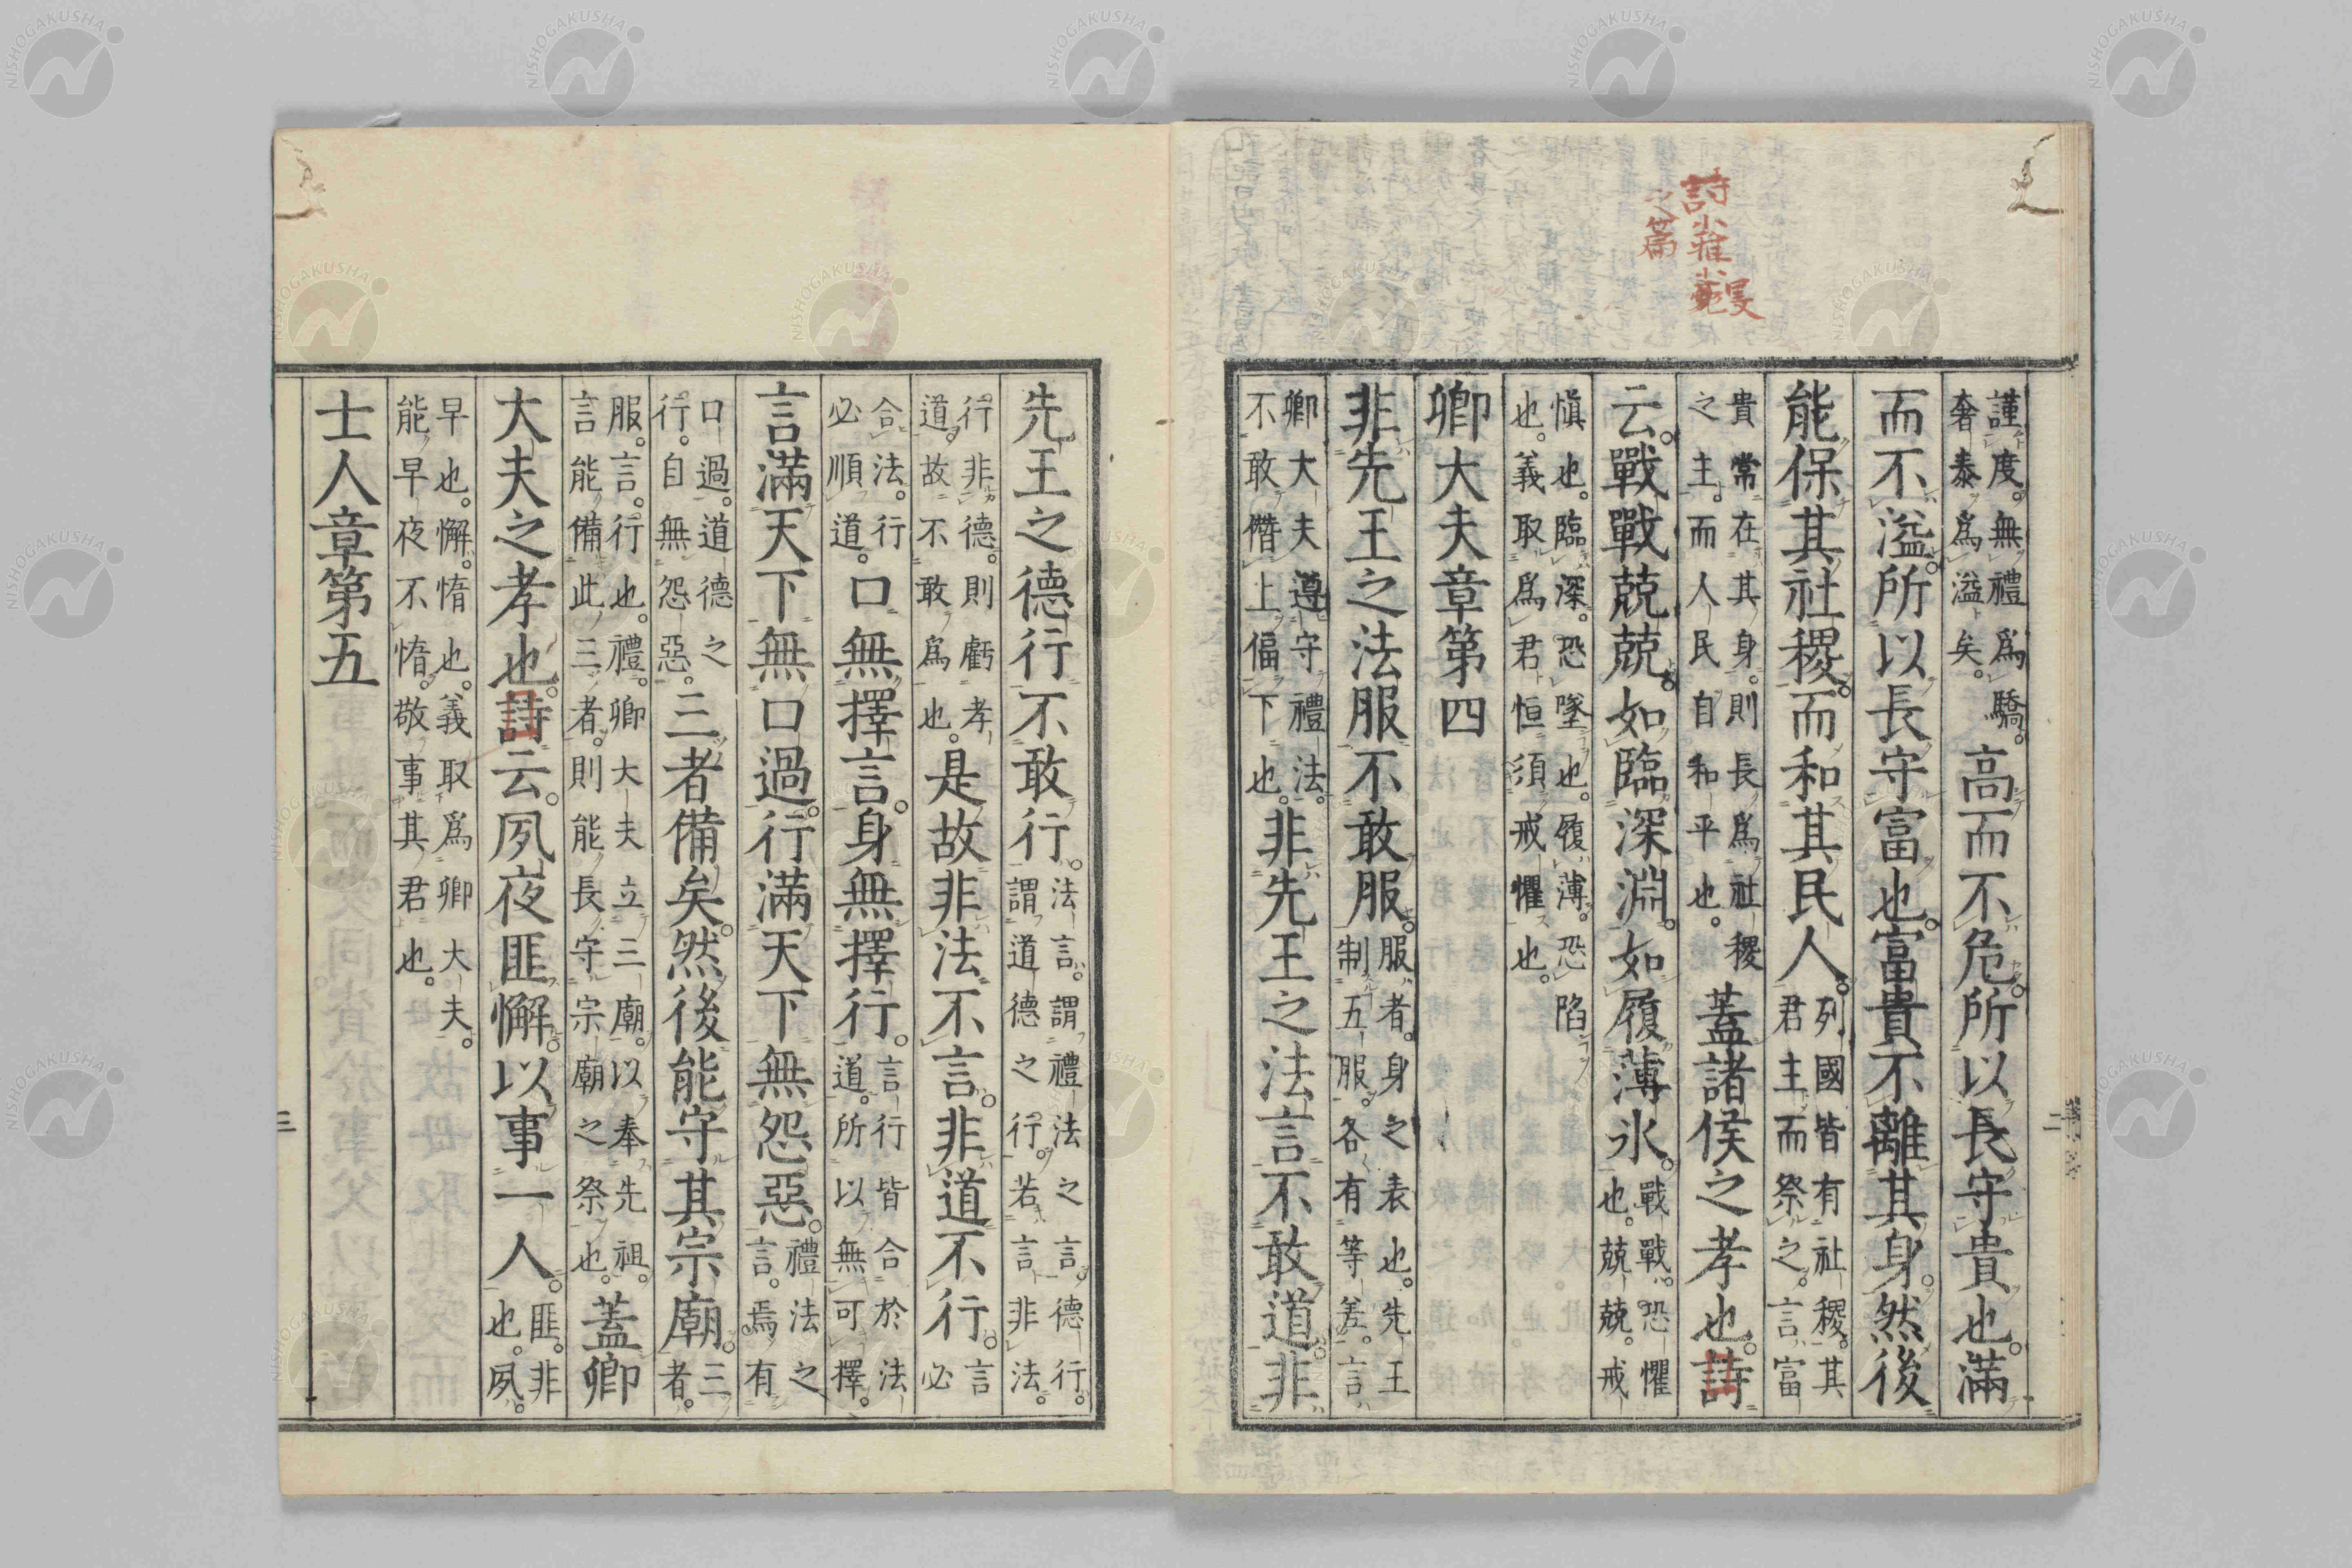 詩小雅小旻
之篇
謹度。無禮爲驕。
奢泰爲溢矣。
高而不危。所以長守貴也。滿
而不溢。所以長守富也。富貴不離其身。然後
能保其社稷。而和其民人。
列國皆有社稷。其
君主而祭之。言富
貴常在其身。則長爲社稷
之主。而人民自和平也。
蓋諸侯之孝也。詩
云。戰戰兢兢。如臨深淵。如履薄氷。
戰戰。恐懼
也。兢兢。戒
愼也。臨深。恐墜也。履薄。恐陷
也。義取爲君恒須戒懼也。
卿大夫章第四
非先王之法服不敢服。
服者。身之表也。先王
制五服。各有等差。言
卿大夫遵守禮法。
不敢僭上偪下也。
非先王之法言不敢道。非
先王之德行不敢行。
法言。謂禮法之言。德行。
謂道德之行。若言非法。
行非德。則虧孝
道。故不敢爲也。
是故非法不言。非道不行。
言
必
合法。行
必順道。
口無擇言。身無擇行。
言行皆合於法
道。所以無可擇。
言滿天下無口過。行滿天下無怨惡。
禮法之
言。焉有
口過。道德之
行。自無怨惡。
三者備矣。然後能守其宗廟。
三
者。
服。言。行也。禮。卿大夫立三廟。以奉先祖。
言能備此三者。則能長守宗廟之祭也。
蓋卿
大夫之孝也。詩云。夙夜匪懈。以事一人。
匪。非
也。夙。
早也。懈。惰也。義取爲卿大夫。
能早夜不惰。敬事其君也。
士人章第五
二
三
NISHOGAKUSHA